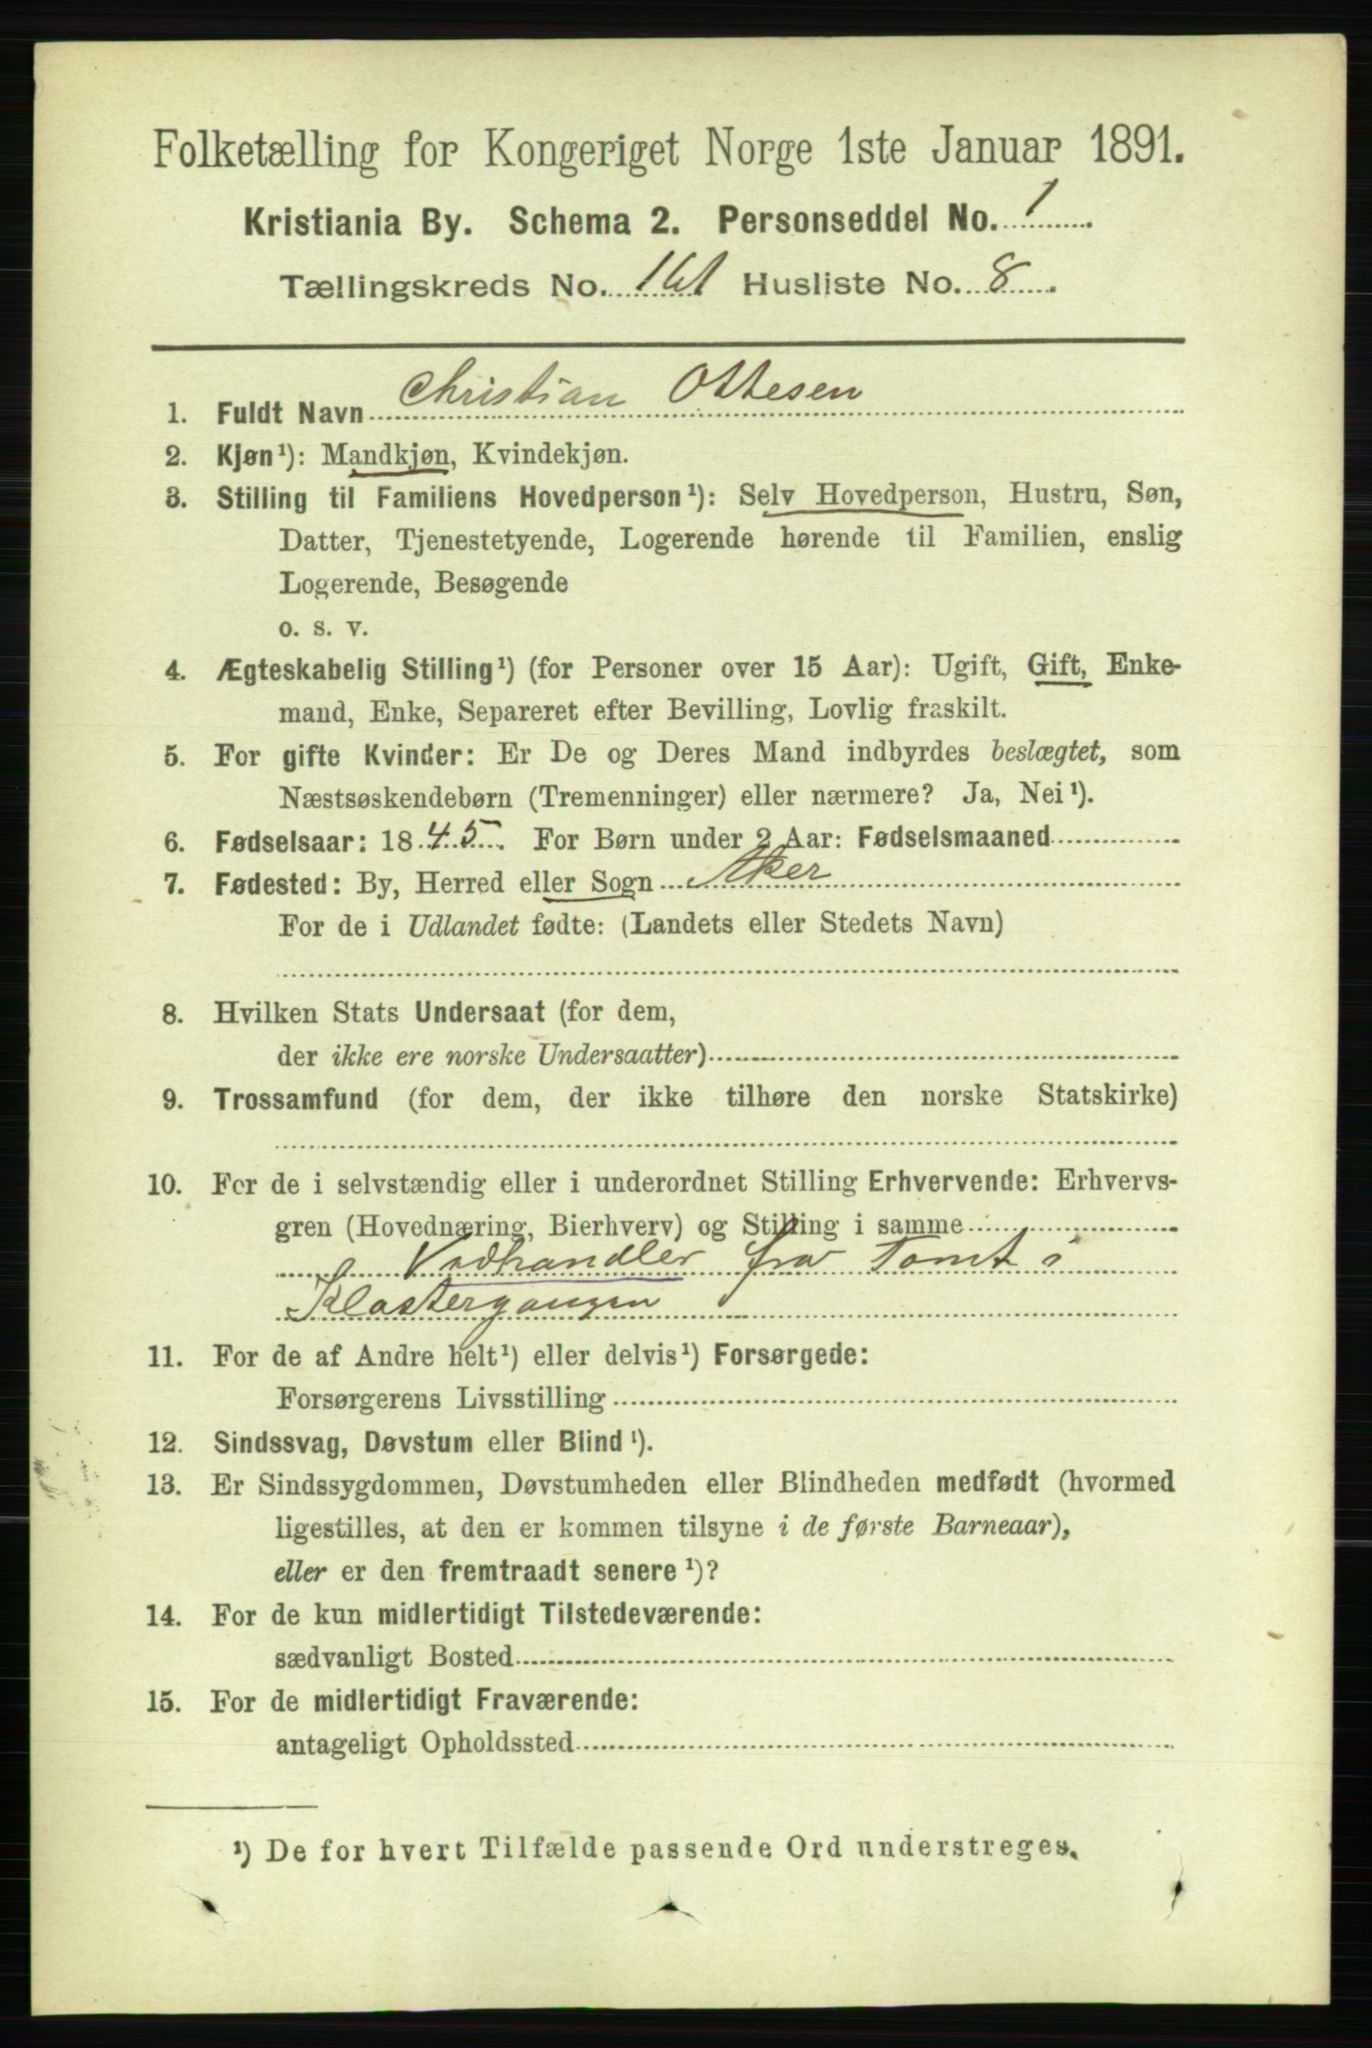 Folketælling for Kongeriget Norge 1ste Januar 1891.
Kristiania By. Schema 2. Personseddel No. 1
Tællingskreds No. 161 Husliste No. 8
1. Fuldt Navn Christian Ottesen
2. Kjøn¹): Mandkjøn, Kvindekjøn.
3. Stilling til Familiens Hovedperson¹): Selv Hovedperson, Hustru, Søn,
Datter, Tjenestetyende, Logerende hørende til Familien, enslig
Logerende, Besøgende
o. s. v.
4. Ægteskabelig Stilling¹) (for Personer over 15 Aar): Ugift, Gift, Enke-
mand, Enke, Separeret efter Bevilling, Lovlig fraskilt.
5. For gifte Kvinder: Er De og Deres Mand indbyrdes beslægtet, som
Næstsøskendebørn (Tremenninger) eller nærmere? Ja, Nei¹).
6. Fødselsaar: 1845. For Børn under 2 Aar: Fødselsmaaned
7. Fødested: By, Herred eller Sogn Aker
For de i Udlandet fødte: (Landets eller Stedets Navn)
8. Hvilken Stats Undersaat (for dem,
der ikke ere norske Undersaatter)
9. Trossamfund (for dem, der ikke tilhøre den norske Statskirke)
10. For de i selvstændig eller i underordnet Stilling Erhvervende: Erhvervs-
gren (Hovednæring, Bierhverv) og Stilling i samme
Vedhandler fra Tomt i
Klostergangen
11. For de af Andre helt¹) eller delvis¹) Forsørgede:
Forsørgerens Livsstilling
12. Sindssvag, Døvstum eller Blind¹).
13. Er Sindssygdommen, Døvstumheden eller Blindheden medfødt (hvormed
ligestilles, at den er kommen tilsyne i de første Barneaar),
eller er den fremtraadt senere¹)?
14. For de kun midlertidigt Tilstedeværende:
sædvanligt Bosted
15. For de midlertidigt Fraværende:
antageligt Opholdssted
¹) De for hvert Tilfælde passende Ord understreges.